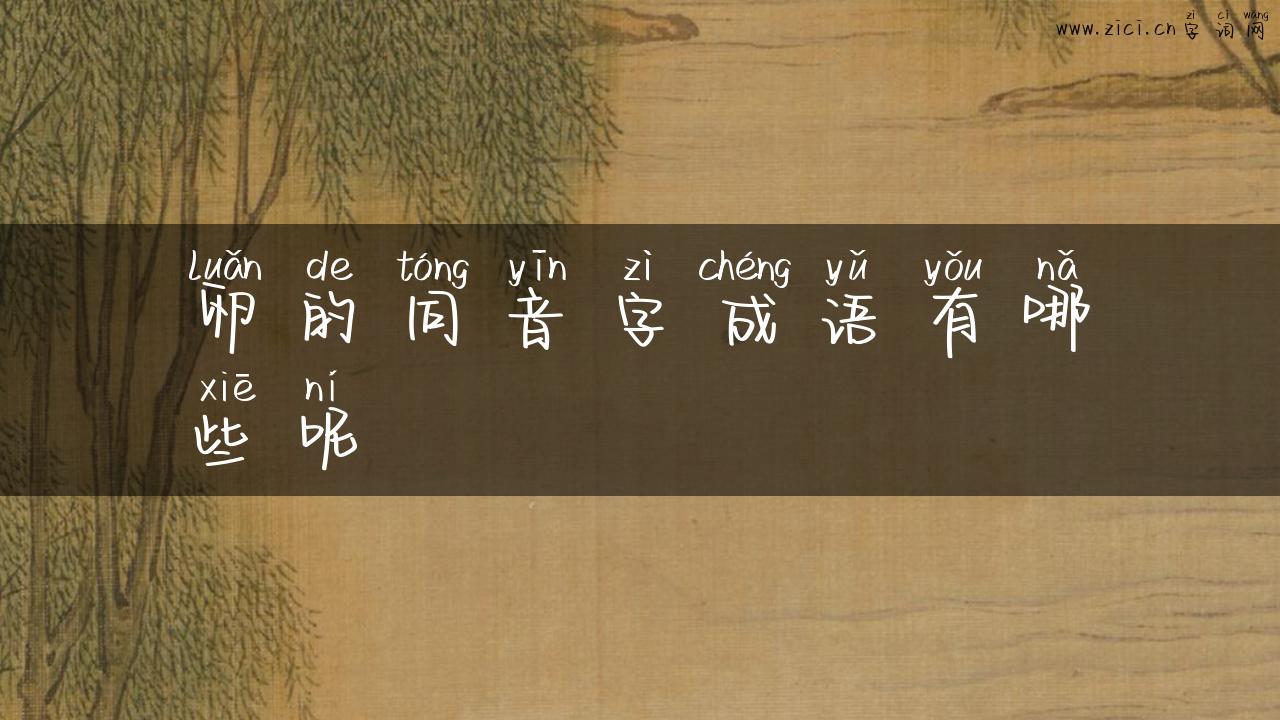 zì cí wǎng
www.zici.cn 字 词 网
luǎn de tóng yīn zì chéng yǔ yǒu nǎ
卵 的 同 音 字 成 语 有 哪
xiē ní
些 呢